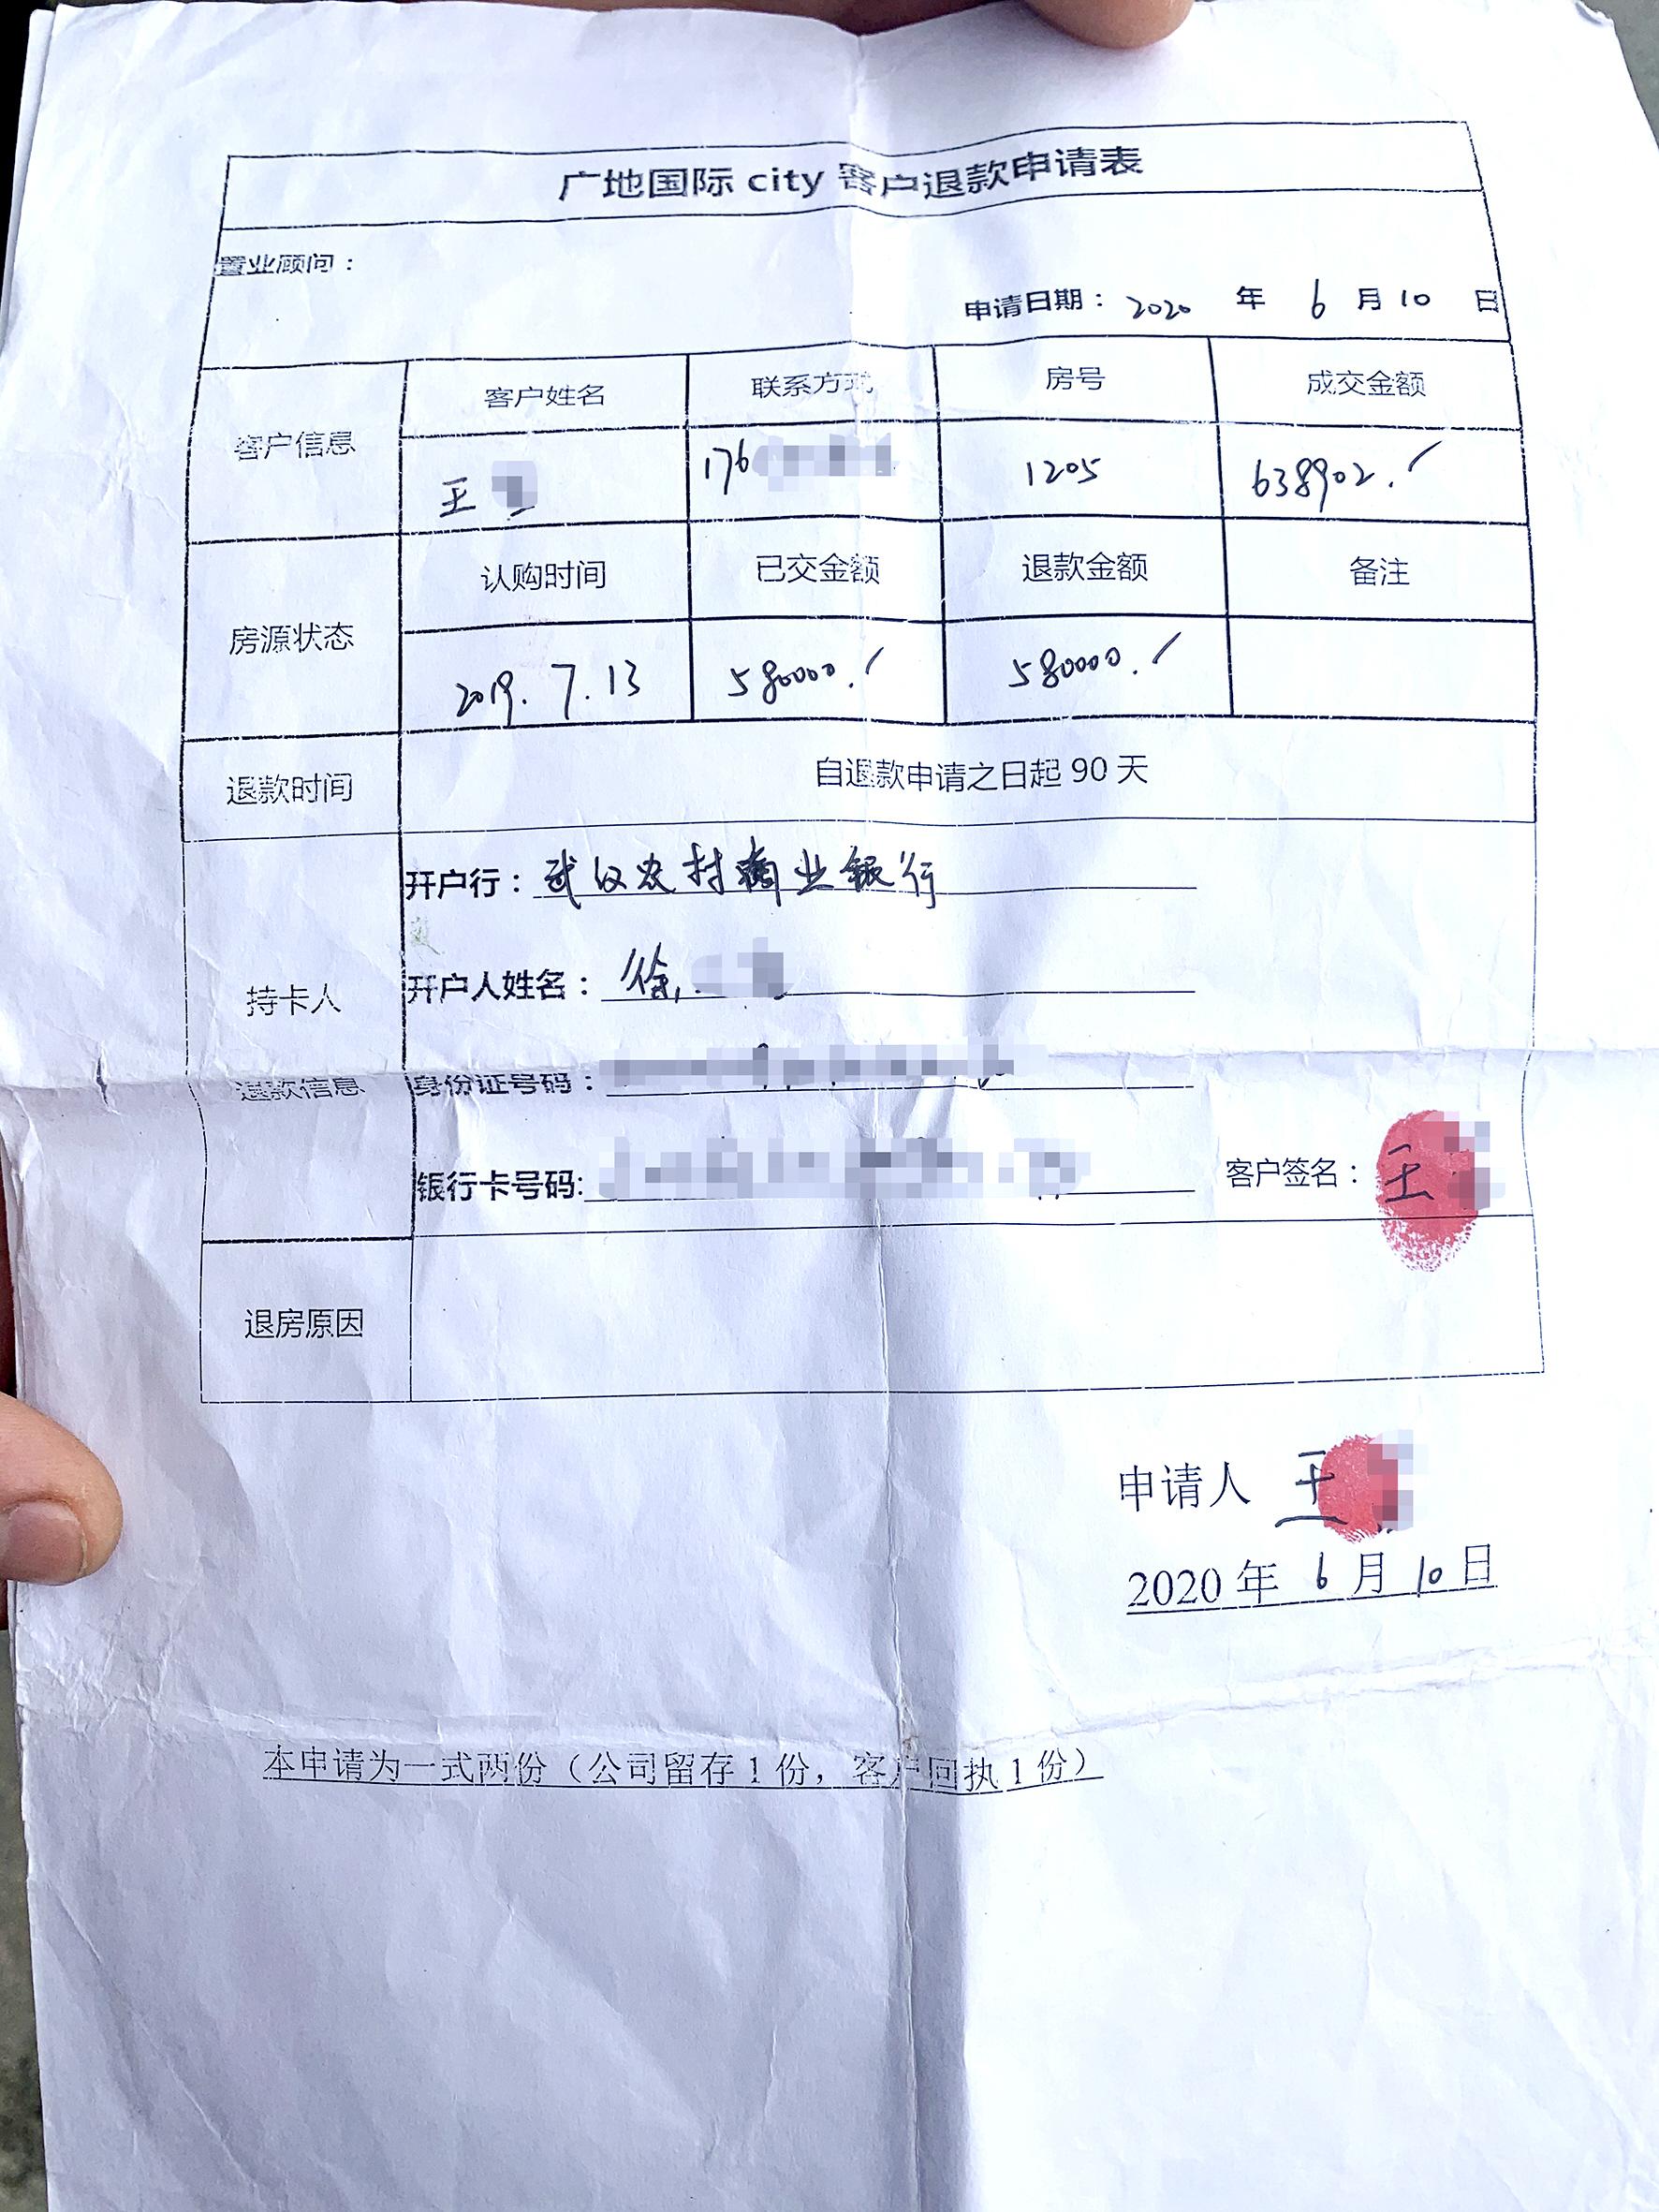 广地国际 city 客户退款申请表
置业顾问：
申请日期： 2020 年 6 月 10 日
客户信息
客户姓名 联系方式 房号 成交金额
王 176 1205 638902.
房源状态
认购时间 已交金额 退款金额 备注
2019.7.13 580000. 580000.
退款时间 自退款申请之日起 90 天
持卡人
退款信息
开户行：武汉农村商业银行
开户人姓名：徐
身份证号码：
银行卡号码: 客户签名：王
退房原因
申请人 王
2020 年 6 月 10 日
本申请为一式两份（公司留存 1 份，客户回执 1 份）